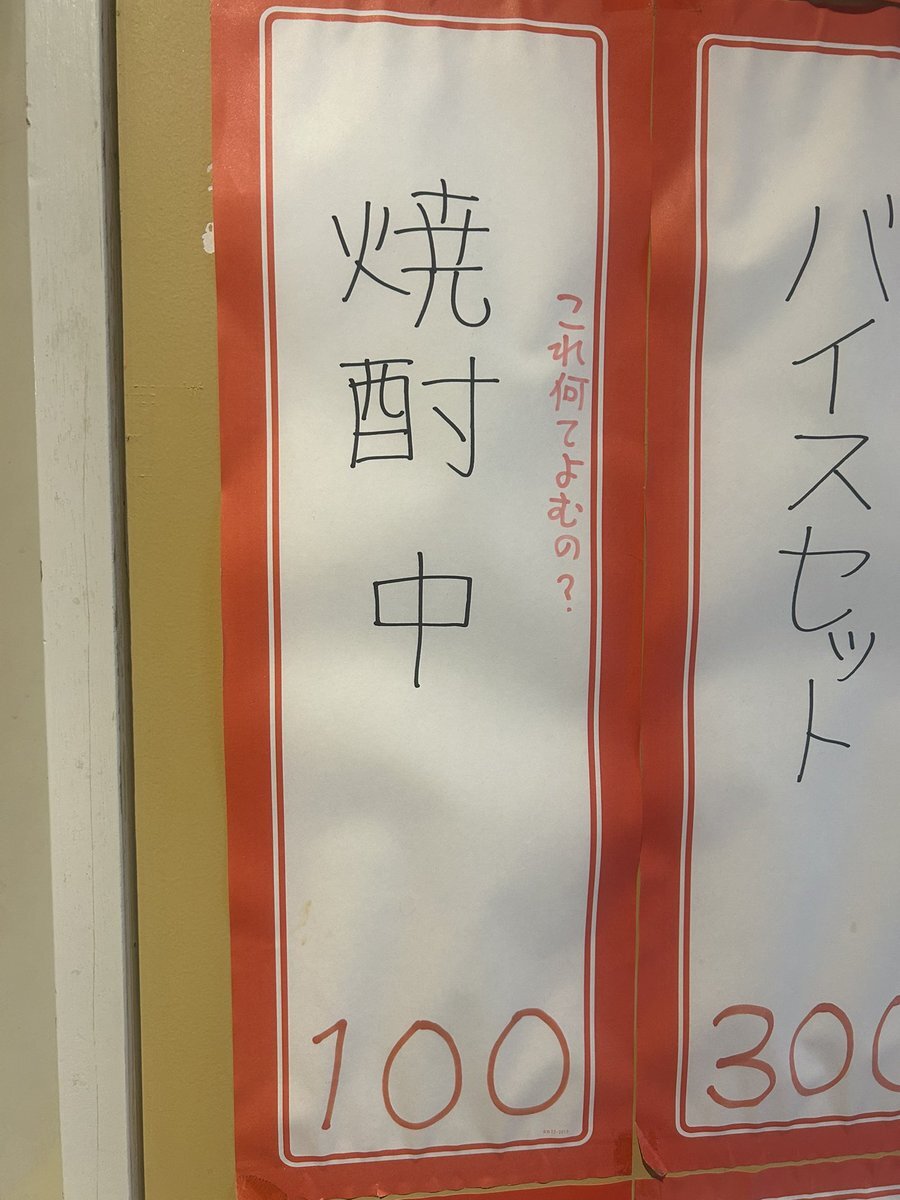 バイスセット
300
これ何てよむの?
焼酎 中
100